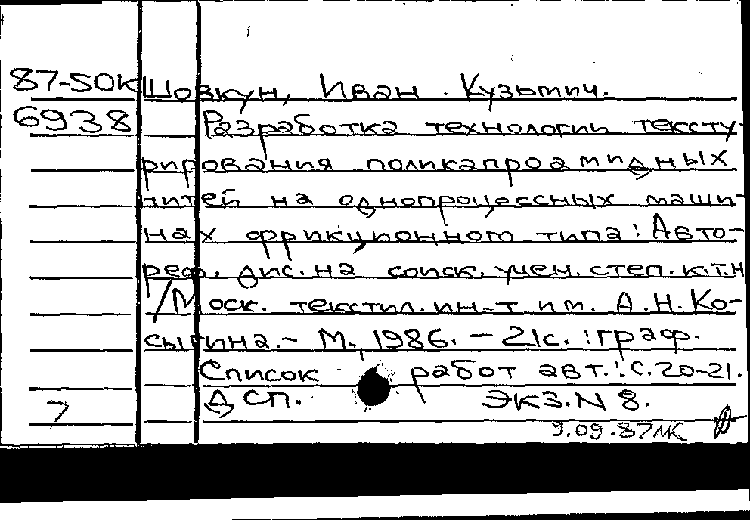 87-50К Шовкун, Иван Кузьмич.
6938 Разработка технологии тексту-
рирования поликапроамидных
нитей на однопроцессных маши-
нах фрикционного типа: Авто-
реф. дис. на соиск. учен. степ. к.т.н
/Моск. текстил. ин-т им. А.Н. Ко-
сыгина. - М., 1986. - 21с. : граф.
Список работ авт.: с. 20-21.
7 ДСП. Экз. N 8.
9.09.87 лк